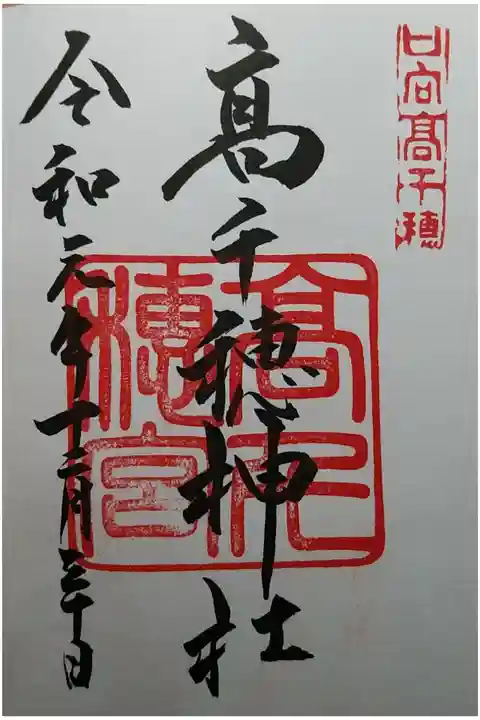 日向高千穂
髙千穂神社
高千穂宮
令和元年十二月三十日